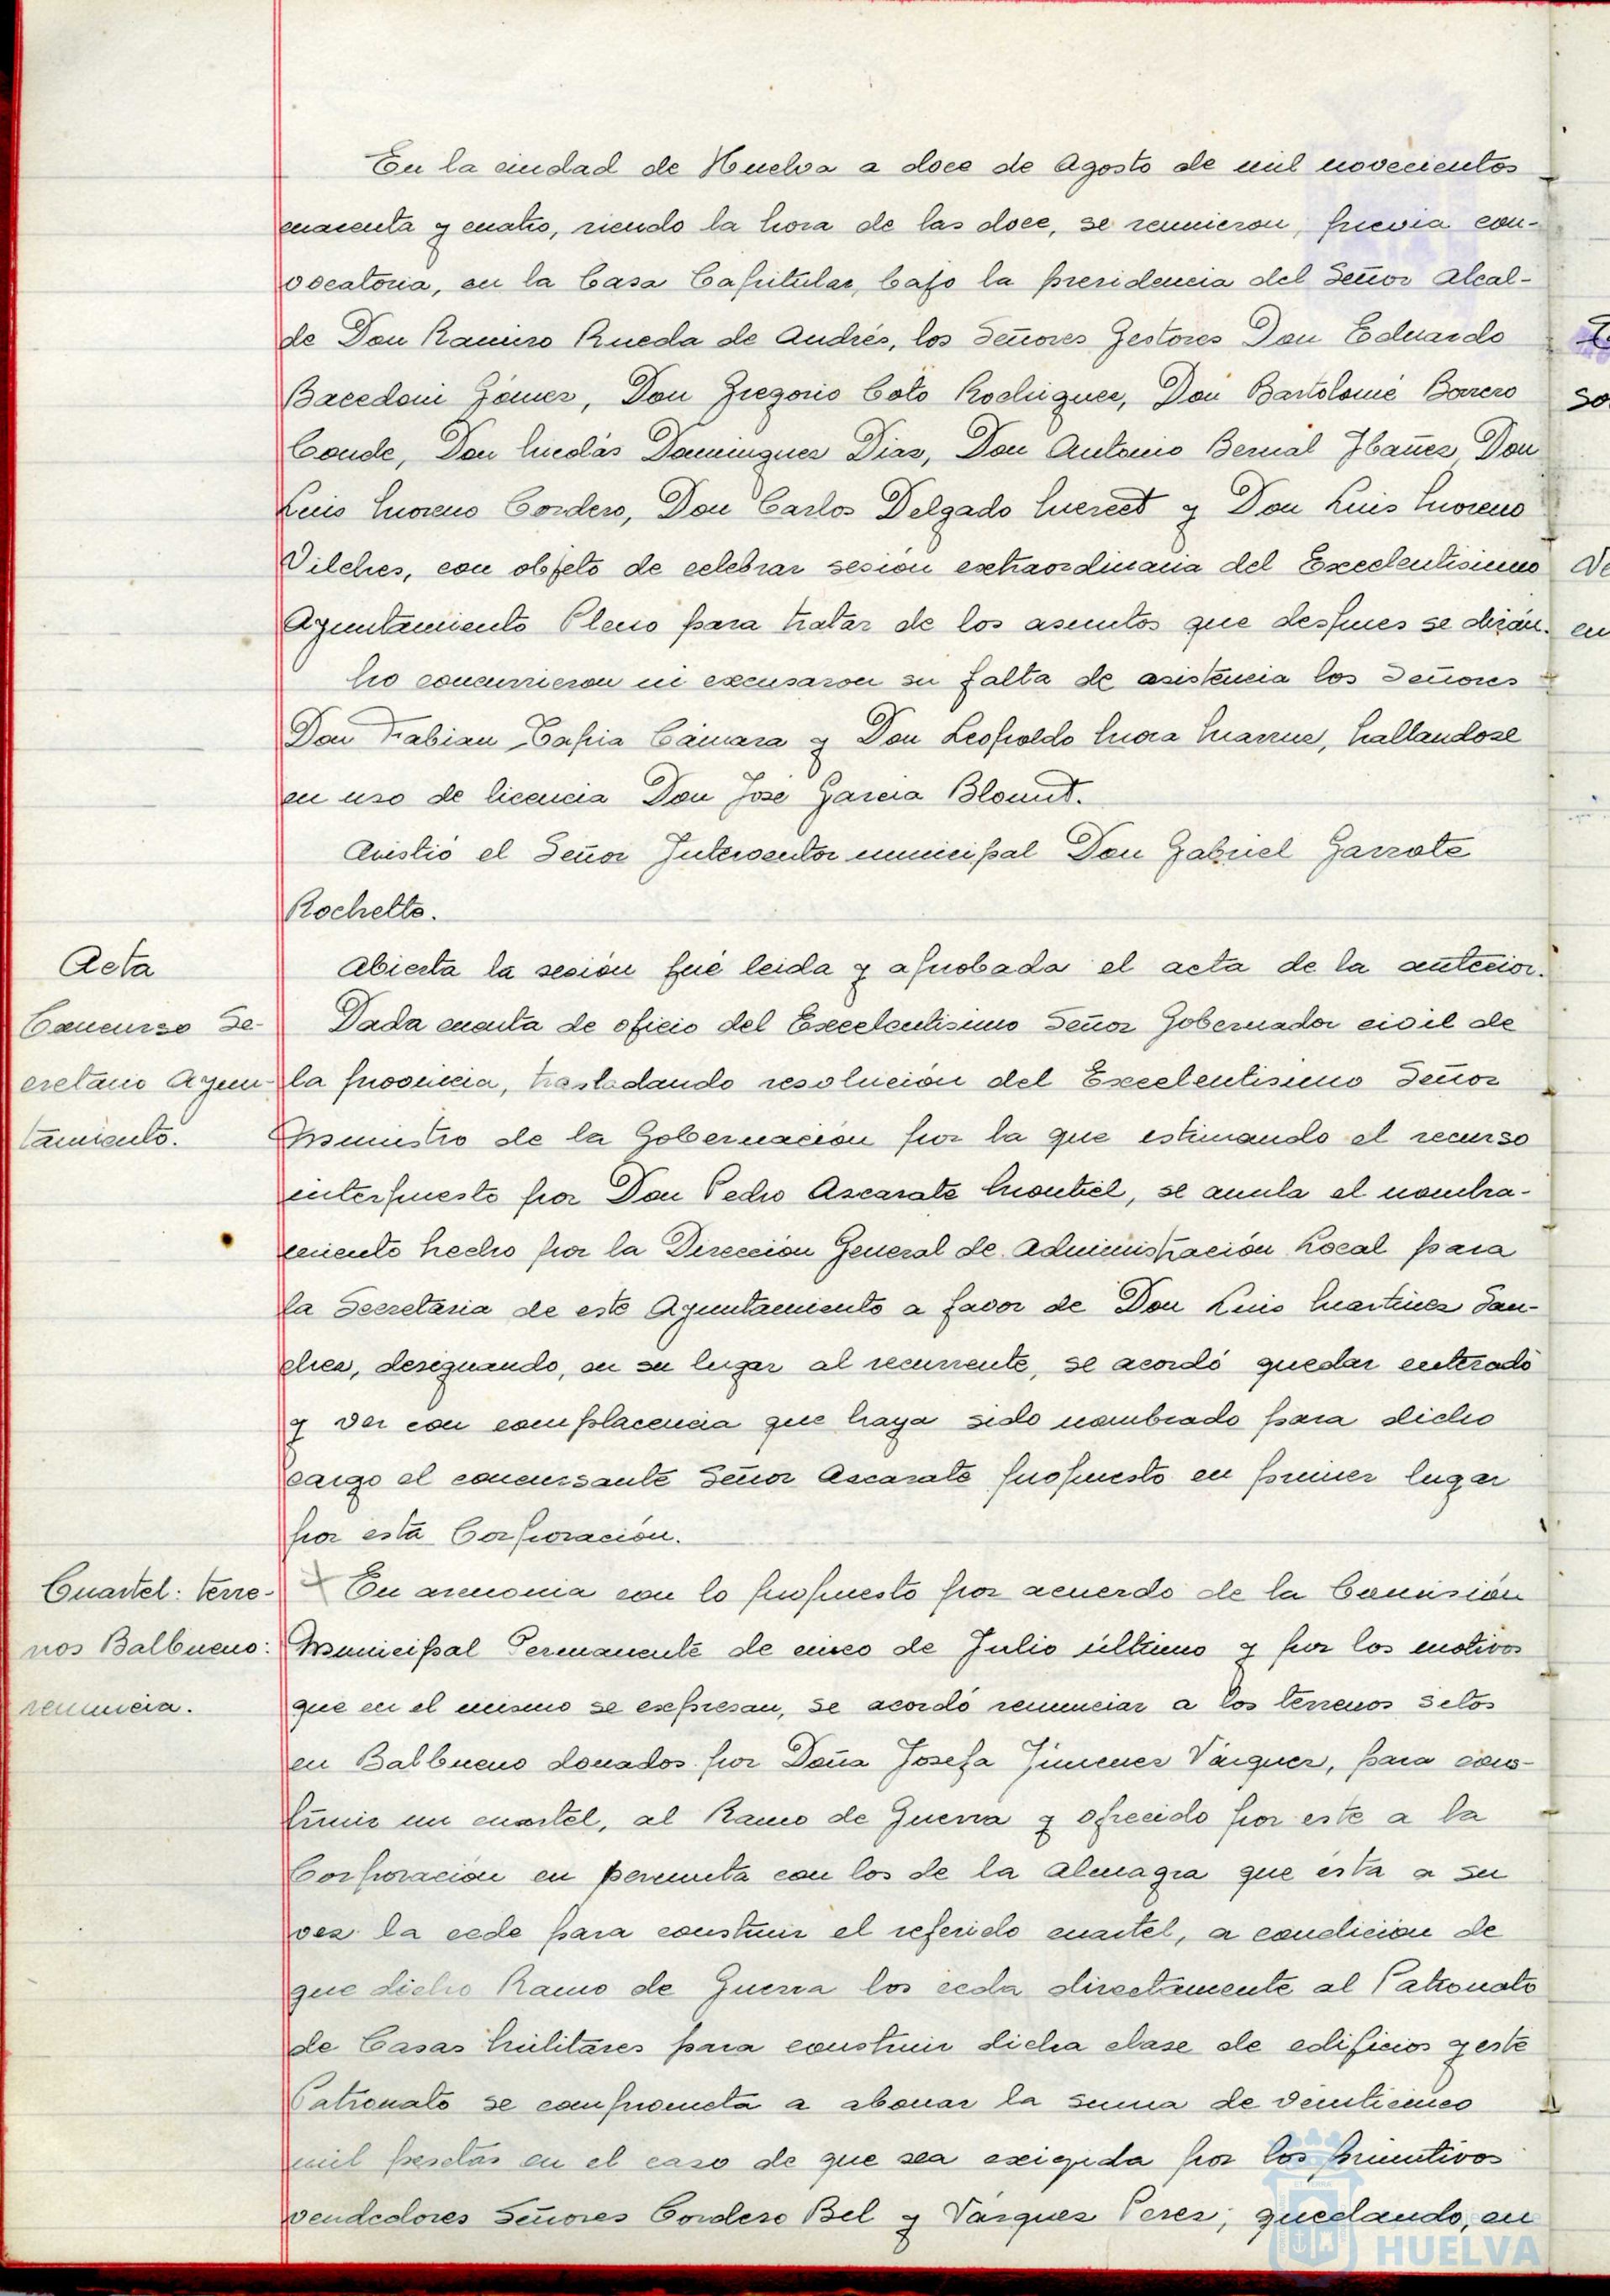 En la ciudad de Huelva a doce de Agosto de mil novecientos
cuarenta y cuatro, siendo la hora de las doce, se reunieron, previa con-
vocatoria, en la Casa Capitular, bajo la presidencia del Señor Alcal-
de Don Ramiro Rueda de Andrés, los Señores Gestores Don Eduardo
Bacedoni Gómez, Don Gregorio Coto Rodriguez, Don Bartolomé Borrero
Conde, Don Nicolás Dominguez Diaz, Don Antonio Bernal Ibañez, Don
Luis Moreno Cordero, Don Carlos Delgado Merect y Don Luis Moreno
Vilches, con objeto de celebrar sesión extraordinaria del Excelentisimo
Ayuntamiento Pleno para tratar de los asuntos que despues se dirán.
No concurrieron ni excusaron su falta de asistencia los Señores
Don Fabian Tapia Cámara y Don Leopoldo Mora, hallandose
en uso de licencia Don José Garcia Blount.
Asistió el Señor Interventor municipal Don Gabriel Garrote
Rochette.
Acta
Abierta la sesión fué leida y aprobada el acta de la anterior.
Concurso Se-
cretario Ayun-
tamiento.
Dada cuenta de oficio del Excelentisimo Señor Gobernador civil de
la provincia, trasladando resolución del Excelentisimo Señor
Ministro de la Gobernación por la que estimando el recurso
interpuesto por Don Pedro Ascarate Montiel, se anula el nombra-
miento hecho por la Dirección General de Administración Local para
la Secretaria de este Ayuntamiento a favor de Don Luis Martinez San-
chez, designando, en su lugar al recurrente, se acordó quedar enterado
y ver con complacencia que haya sido nombrado para dicho
cargo el concursante Señor Ascarate propuesto en primer lugar
por esta Corporación.
Cuartel: terre-
nos Balbueno:
renuncia.
En armonia con lo propuesto por acuerdo de la Comisión
Municipal Permanente de cinco de Julio último y por los motivos
que en el mismo se expresan, se acordó renunciar a los terrenos sitos
en Balbueno donados por Doña Josefa Jimenez Vázquez, para cons-
truir un cuartel, al Ramo de Guerra y ofrecido por este a la
Corporación en permuta con los de la Almagra que ésta a su
vez la cede para construir el referido cuartel, a condición de
que dicho Ramo de Guerra los ceda directamente al Patronato
de Casas Militares para construir dicha clase de edificios y este
Patronato se comprometa a abonar la suma de veinticinco
mil pesetas en el caso de que sea exigida por los primitivos
vendedores Señores Cordero Bel y Vázquez Perez; quedando, en
HUELVA